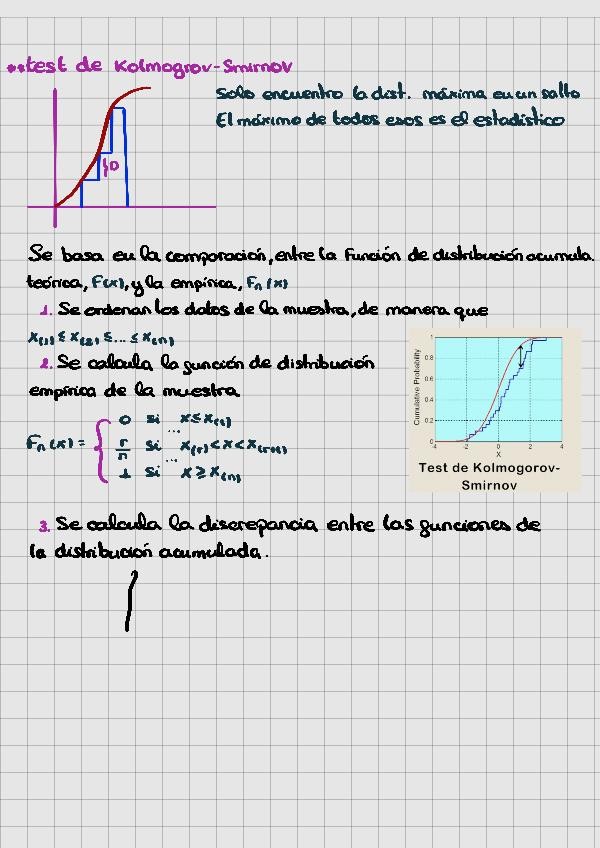 **test de Kolmogrov-Smirnov
Solo encuentro la dist. máxima en un salto
El máximo de todos esos es el estadístico
D
Se basa en la comparación, entre la función de distribución acumula.
teórica, F(x), y la empírica, Fn(x)
1. Se ordenan los datos de la muestra, de manera que
x(1) ≤ x(2) ≤ ... ≤ x(n)
2. Se calcula la función de distribución
empírica de la muestra
Fn(x) =
0 si x ≤ x(1)
...
r/n si x(r) < x < x(r+1)
...
1 si x ≥ x(n)
Cumulative Probability
1
0.8
0.6
0.4
0.2
0
-4 -2 0 2 4
X
Test de Kolmogorov-
Smirnov
3. Se calcula la discrepancia entre las funciones de
la distribución acumulada.